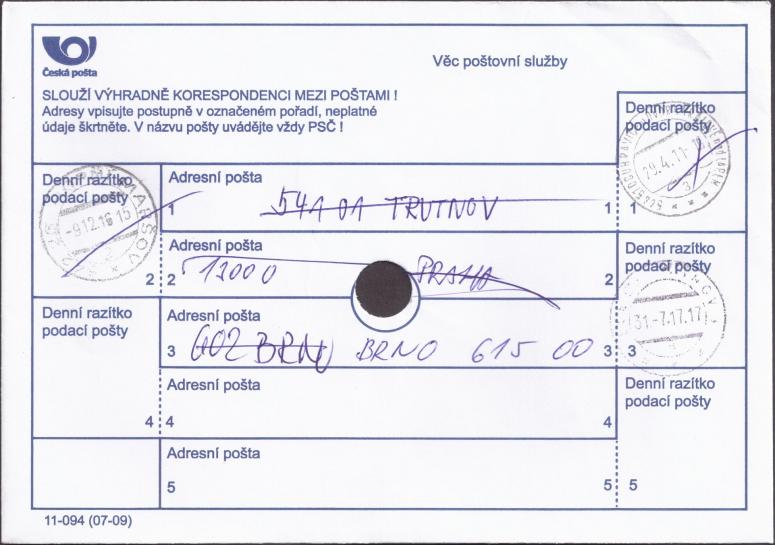 Česká pošta
Věc poštovní služby
SLOUŽÍ VÝHRADNĚ KORESPONDENCI MEZI POŠTAMI !
Adresy vpisujte postupně v označeném pořadí, neplatné
údaje škrtněte. V názvu pošty uvádějte vždy PSČ !
Denní razítko
podací pošty
29.4.11
3
1
Adresní pošta
1
54101 TRUTNOV
1
Denní razítko
podací pošty
MARŠOV
-9.12.16 15
2
Adresní pošta
2
12000 PRAHA
2
31.-7.17.17
3
Adresní pošta
3
602 BRNO BRNO 615 00
3
Denní razítko
podací pošty
4
Adresní pošta
4
4
Denní razítko
podací pošty
5
Adresní pošta
5
5
11-094 (07-09)